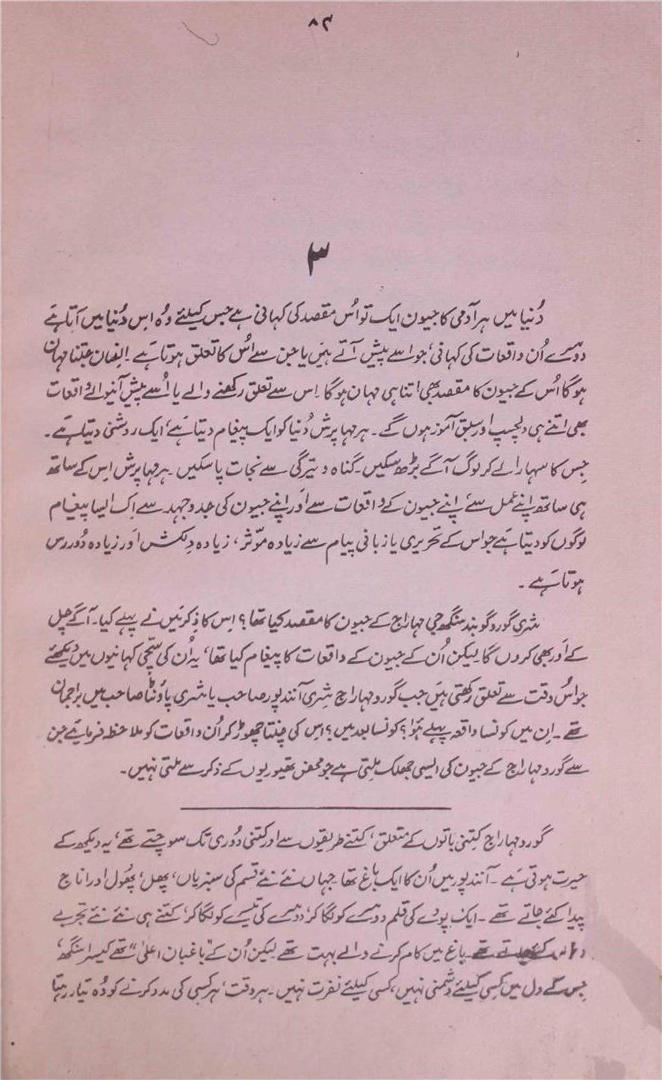 ۸۳
۳
دُنیا میں ہر آدمی کا جیون ایک تو اُس مقصد کی کہانی ہے جس کیلئے وُہ اِس دُنیا میں آتا ہَے
دوسرے اُن واقعات کی کہانی، جو اسے پیش آتے ہیں یا جن سے اُس کا تعلق ہوتا ہَے۔ اِنسان جتنا مہان
ہو گا اُس کے جیون کا مقصد بھی اتنا ہی مہان ہو گا۔ اِس سے تعلق رکھنے والے یا اُسے پیش آنیوالے واقعات
بھی اتنے ہی دلچسپ اور سبق آموز ہوں گے۔ ہر مہا پرش دُنیا کو ایک پیغام دیتا ہَے، ایک روشنی دیتا ہَے۔
جس کا سہارا لے کر لوگ آگے بڑھ سکیں۔ گناہ و تیرگی سے نجات پا سکیں۔ ہر مہا پرش اِس کے ساتھ
ہی ساتھ اپنے عمل سے، اپنے جیون کے واقعات سے اَور اپنے جیون کی جدوجہد سے اِک ایسا پیغام
لوگوں کو دیتا ہَے جو اس کے تحریری یا زبانی پیام سے زیادہ موّثر، زیادہ دِلکش اَور زیادہ دُوررس
ہوتا ہَے۔
شری گورو گوبند سنگھ جی مہاراج کے جیون کا مقصد کیا تھا؟ اِس کا ذِکر مَیں نے پہلے کیا۔ آگے چل
کے اَور بھی کروں گا لیکن اُن کے جیون کے واقعات کا پیغام کیا تھا، یہ اُن کی سچّی کہانیوں میں دیکھئے
جو اُس وقت سے تعلق رکھتی ہَیں جب گورو مہاراج شری آنند پور صاحب یا شری پاؤنٹا صاحب میں براجمان
تھے۔ اِن میں کونسا واقعہ پہلے ہؤا؟ کونسا بعد میں؟ اِس کی چنتا چھوڑ کر اُن واقعات کو ملاحظہ فرمایئے جن
سے گورو مہاراج کے جیون کی ایسی جھلک مِلتی ہے جو محض تھیوریوں کے ذکر سے مِلتی نہیں۔
گورو مہاراج کِتنی باتوں کے متعلق، کتنے طریقوں سے اور کتنی دُوری تک سوچتے تھے، یہ دیکھ کے
حیرت ہوتی ہَے۔ آنند پور میں اُن کا ایک باغ تھا جہاں نئے نئے قسم کی سبزیاں، پھل، پھُول اور اناج
پیدا کئے جاتے تھے۔ ایک پودے کی قلم دوسرے کو لگا کر، دوسرے کی تیسرے کو لگا کر، کتنے ہی نئے نئے تجربے
کئے جاتے تھے۔ باغ میں کام کرنے والے بہت تھے لیکن اُن کے "باغبان اعلیٰ" تھے کیسرا سنگھ،
جِس کے دِل میں کِسی کیلئے دُشمنی نہیں، کسی کیلئے نفرت نہیں۔ ہر وقت، ہر کسی کی مدد کرنے کو وُہ تیار رہتا